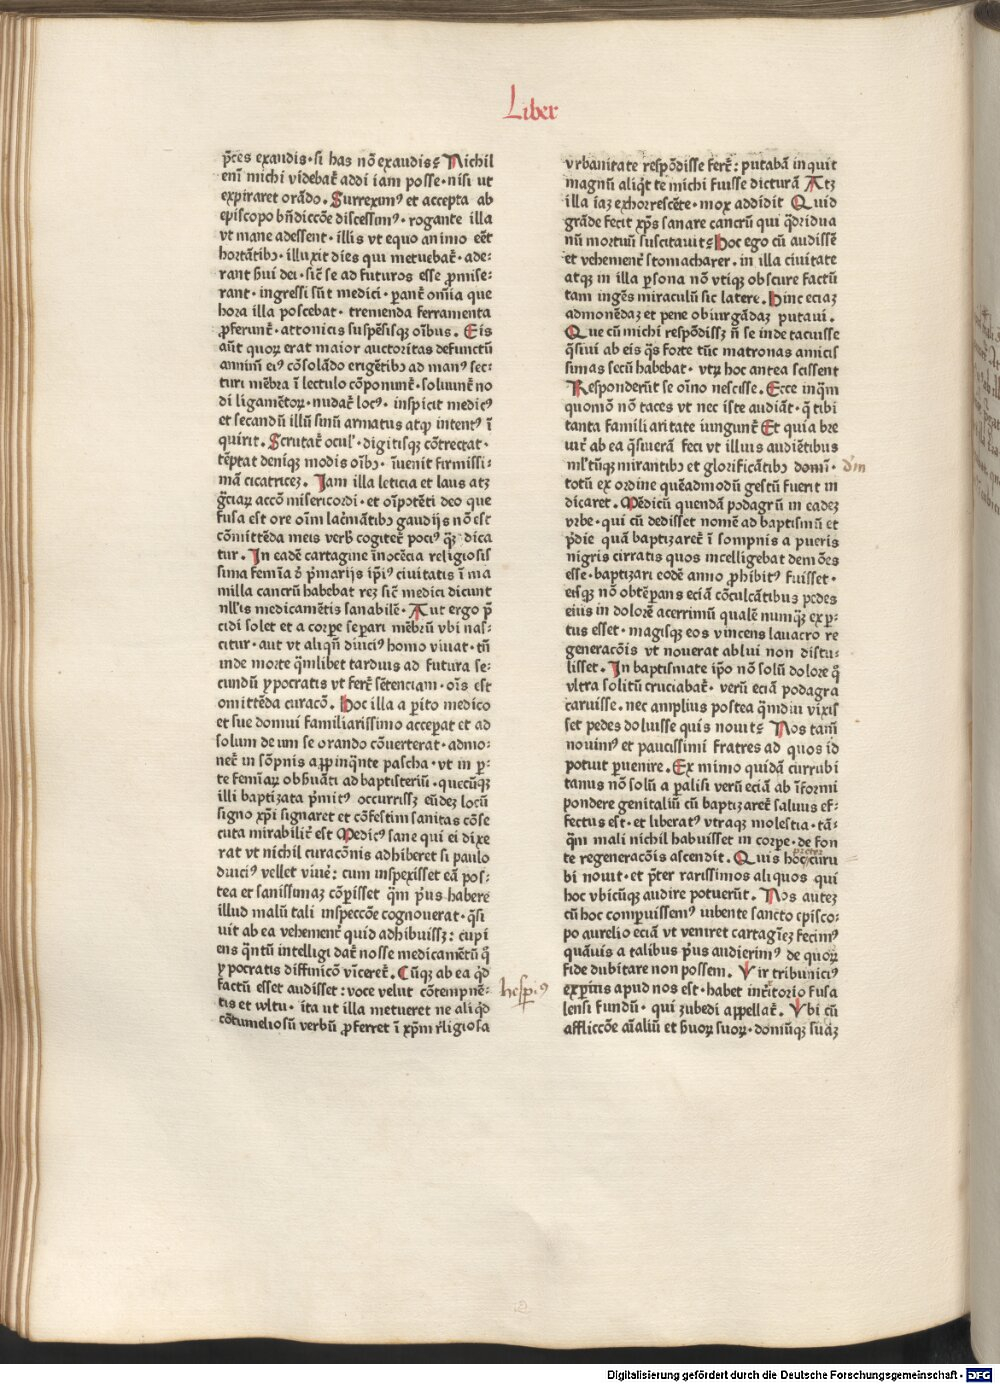 Liber
p̄ces exaudis·si has nō exaudis? Nichil
enī michi videbat᷒ addi iam posse·nisi ut
expiraret orādo. Surreximꝰ et accepta ab
episcopo bn̄diccōe discessimꝰ·rogante illa
vt mane adessent·illis vt equo animo eēt
hortātibꝰ·illuxit dies qui metuebat᷒·ade-
rant ẜui dei·sic̄ se ad futuros esse ꝓmise-
rant·ingressi sūt medici·parant᷒ om̄ia que
hora illa poscebat·tremenda ferramenta
ꝓferunt᷒·attonitis suspēsisqꝫ oībus. Eis
aūt quoꝝ erat maior auctoritas defunctū
animū eiꝰ cōsolādo erigētibꝰ ad manꝰ sec-
turi mēbra ī lectulo cōponunt᷒·soluunt᷒ no
di ligamētoꝝ·nudat᷒ locꝰ·inspicit medicꝰ
et secandū illū sinū armatus atqꝫ intentꝰ ī
quirit. Scrutat᷒ ocul᷒·digitisqꝫ cōtrectat·
tēptat deniqꝫ modis oībꝰ·īuenit firmissi-
mā cicatriceꝫ. Jam illa leticia et laus atꝫ
gr̄ciaꝝ accō misericordi·et oīpotēti deo que
fusa est ore oīm lac̄mātibꝰ gaudijs nō est
cōmittēda meis verb᷒ cogitet᷒ pociꝰ qꝫ dica
tur. In eadē cartagine īnocēcia religiosis
sima femīa d᷒ p̄marijs ip̄iꝰ ciuitatis ī ma
milla cancrū habebat reꝫ sic̄ medici dicunt
nll᷒is medicamētis sanabilē. Aut ergo p̄
cidi solet et a corpe separi mēbrū vbi nas-
citur·aut vt aliqn̄ diuciꝰ homo viuat·tn̄
inde morte q̄mlibet tardius ad futura se-
cundū ypocratis vt fert᷒ sētenciam·oīs est
omittēda curacō. Hoc illa a perito medico
et sue domui familiarissimo accepat et ad
solum deum se orando cōuerterat·admo-
net᷒ in sōpnis appinq̄nte pascha·vt in p̱-
te femīaꝝ obẜuāti ad baptisteriū·quecūqꝫ
illi baptizata p̄mitꝰ occurrissꝫ eūdeꝫ locū
signo xp̄i signaret et cōfestim sanitas cōse
cuta mirabilit᷒ est Medicꝰ sane qui ei dixe
rat vt nichil curacōnis adhiberet si paulo
diuciꝰ vellet viue᷒: cum inspexisset eā pos-
tea et sanissimaꝫ cōp̱isset q̄m p̄us habere
illud malū tali inspeccōe cognouerat·q̄si
uit ab ea vehement᷒ quid adhibuissꝫ: cupi
ens q̄ntū intelligi dat᷒ nosse medicamētū q̄
ypocratis diffinicō vīceret᷒. Cūqꝫ ab ea qd̄
factū esset audisset: voce velut cōtempnē-
tis et wltu·ita ut illa metueret ne aliqd̄
cōtumeliosū verbū ꝓferret ī xp̄m r̄ligiosa
hesp̱iꝰ
vrbanitate respōdisse fert᷒: putabā inquit
magnū aliqd̄ te michi fuisse dicturā Atꝫ
illa iaꝫ exhorrescēte·mox addidit Quid
grāde fecit xp̄s sanare cancrū qui q̄dridua
nū mortuū suscitauit? Hoc ego cū audissē
et vehement᷒ stomacharer·in illa ciuitate
atqꝫ in illa p̱sona nō vtiqꝫ obscure factū
tam ingēs miraculū sic latere. Hinc eciaꝫ
admonēdaꝫ et pene obiurgādaꝫ putaui.
Que cū michi respōdissꝫ n̄ se inde tacuisse
q̄siui ab eis q̄s forte tūc matronas amicis
simas secū habebat·vtꝝ hoc antea scissent
Responderūt se oīno nescisse. Ecce inq̄m
quomō nō taces vt nec iste audiāt·q̄ tibi
tanta familiaritate iungunt᷒ Et quia bre
uit᷒ ab ea q̄siuerā feci vt illius audiētibus
ml᷒tūqꝫ mirantibꝰ et glorificātibꝰ domī· dm̄
totū ex ordine quēadmodū gestū fuerit in
dicaret. Medicū quendā podagrū in eadeꝫ
vrbe·qui cū dedisset nomē ad baptismū et
p̄die quā baptizaret᷒ ī sompnis a pueris
nigris cirratis quos intelligebat demōes
esse·baptizari eodē anno ꝓhibitꝰ fuisset·
eisqꝫ nō obtēperans eciā cōculcātibus pedes
eius in dolorē acerrimū qualē numqꝫ exp̱-
tus esset·magisqꝫ eos vincens lauacro re
generacōis vt nouerat ablui non distu-
lisset. In baptismate ip̄o nō solū dolore q̄
vltra solitū cruciabat᷒·verū eciā podagra
caruisse·nec amplius postea q̄mdiu vixis
set pedes doluisse quis nouit? Nos tamē
nouimꝰ et paucissimi fratres ad quos id
potuit p̱uenire. Ex mimo quidā currubi
tanus nō solū a paralisi verū eciā ab īformi
pondere genitaliū cū baptizaret᷒ saluus ef-
fectus est·et liberatꝰ vtraqꝫ molestia·tā-
q̄m mali nichil habuisset in corpe·de fon
te regeneracōis ascendit. Quis hoc curu
preter
bi nouit·et p̄ter rarissimos aliquos qui
hoc vbicūqꝫ audire potuerūt. Nos auteꝫ
cū hoc compuissemꝰ iubente sancto episco-
po aurelio eciā vt veniret cartagīeꝫ fecimꝰ
quāuis a talibus p̄us audierimꝰ de quoꝝ
fide dubitare non possem. Vir tribuniciꝰ
exp̱rius apud nos est·habet int᷒ritorio fusa
lensi fundū·qui zubedi appellat᷒. Vbi cū
affliccōe aīaliū et ẜuoꝝ suoꝝ·domūqꝫ suāꝫ
Digitalisierung gefördert durch die Deutsche Forschungsgemeinschaft - DFG